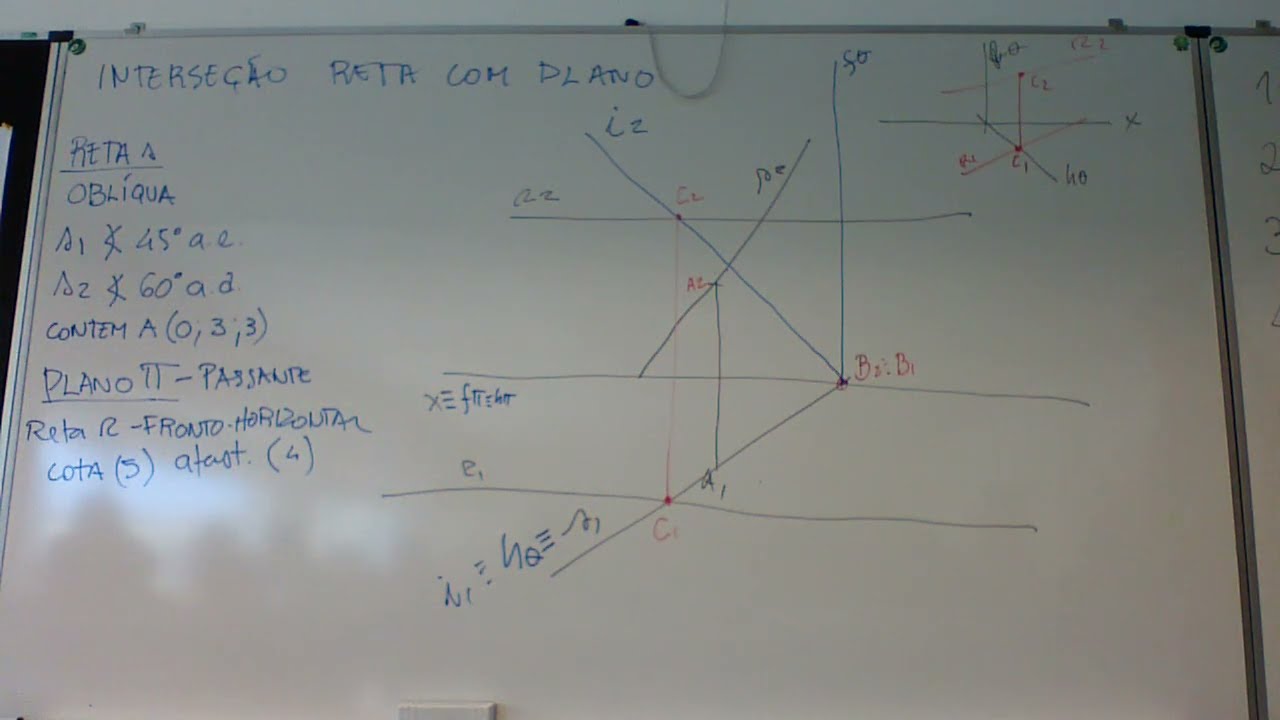 INTERSEÇÃO RETA COM PLANO
RETA s
OBLÍQUA
s1 ∡ 45° a.e.
s2 ∡ 60° a.d.
CONTEM A (0; 3; 3)
PLANO π - PASSANTE
Reta R - FRONTO-HORIZONTAL
COTA (5) afast. (4)
i2
R2
C2
s2
fθ
A2
B2≡B1
x≡fπ≡hπ
R1
A1
C1
i1≡hθ≡s1
fθ
R2
C2
x
R1
C1
hθ
1
2
3